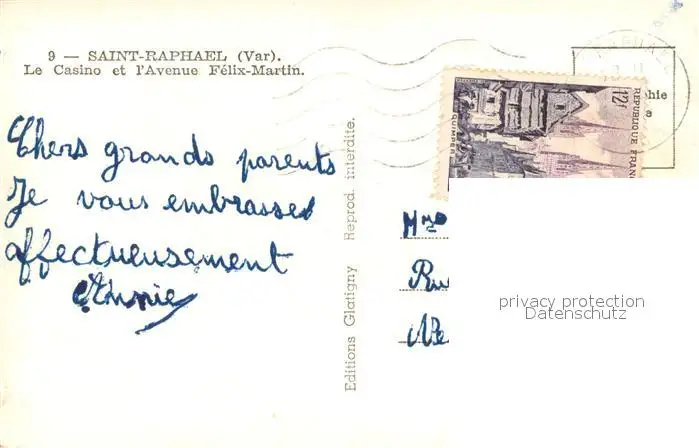 9 — SAINT-RAPHAEL (Var).
Le Casino et l'Avenue Félix-Martin.
Chers grands parents
Je vous embrasses
affectueusement
Annie
Editions Glatigny Reprod. interdite.
12f
REPUBLIQUE FRAN
QUIMPER
phie
Mme
Ru
Ne
privacy protection
Datenschutz